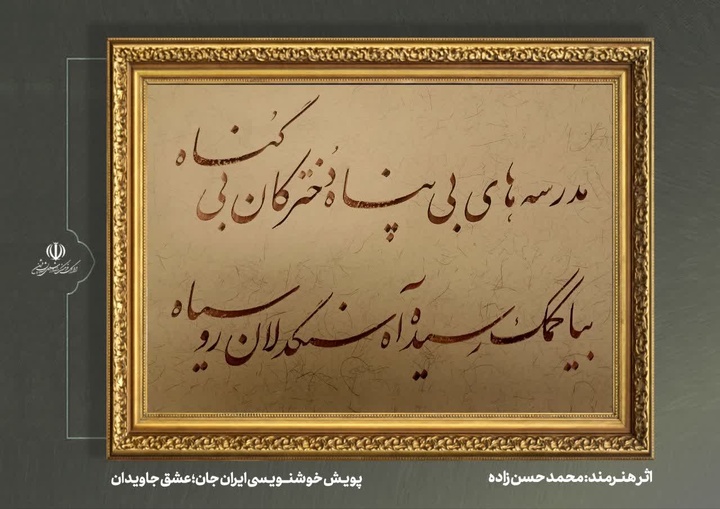 مدرسه های بی پناه دخترکان بی گناه
بیا کمک رسیده آه سنگدلان رو سیاه
اثر هنرمند: محمد حسن زاده
پویش خوشنویسی ایران جان؛ عشق جاویدان